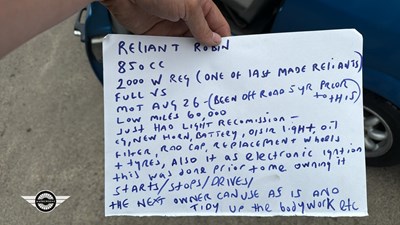 RELIANT ROBIN
850CC
2000 W REG (ONE OF LAST MADE RELIANTS)
FULL V5
MOT AUG 26 - (BEEN OFF ROAD 5 YR PRIOR TO THIS)
LOW MILES 60,000
JUST HAD LIGHT RECOMISSION -
EG, NEW HORN, BATTERY, O/S/R LIGHT, OIL
FILTER, RAD CAP, REPLACEMENT WHEELS
+ TYRES, ALSO it AS electronic ignition
this was done prior to me owning it
STARTS/STOPS/DRIVES/
THE NEXT OWNER CAN USE AS IS AND
TIDY UP the bodywork etc